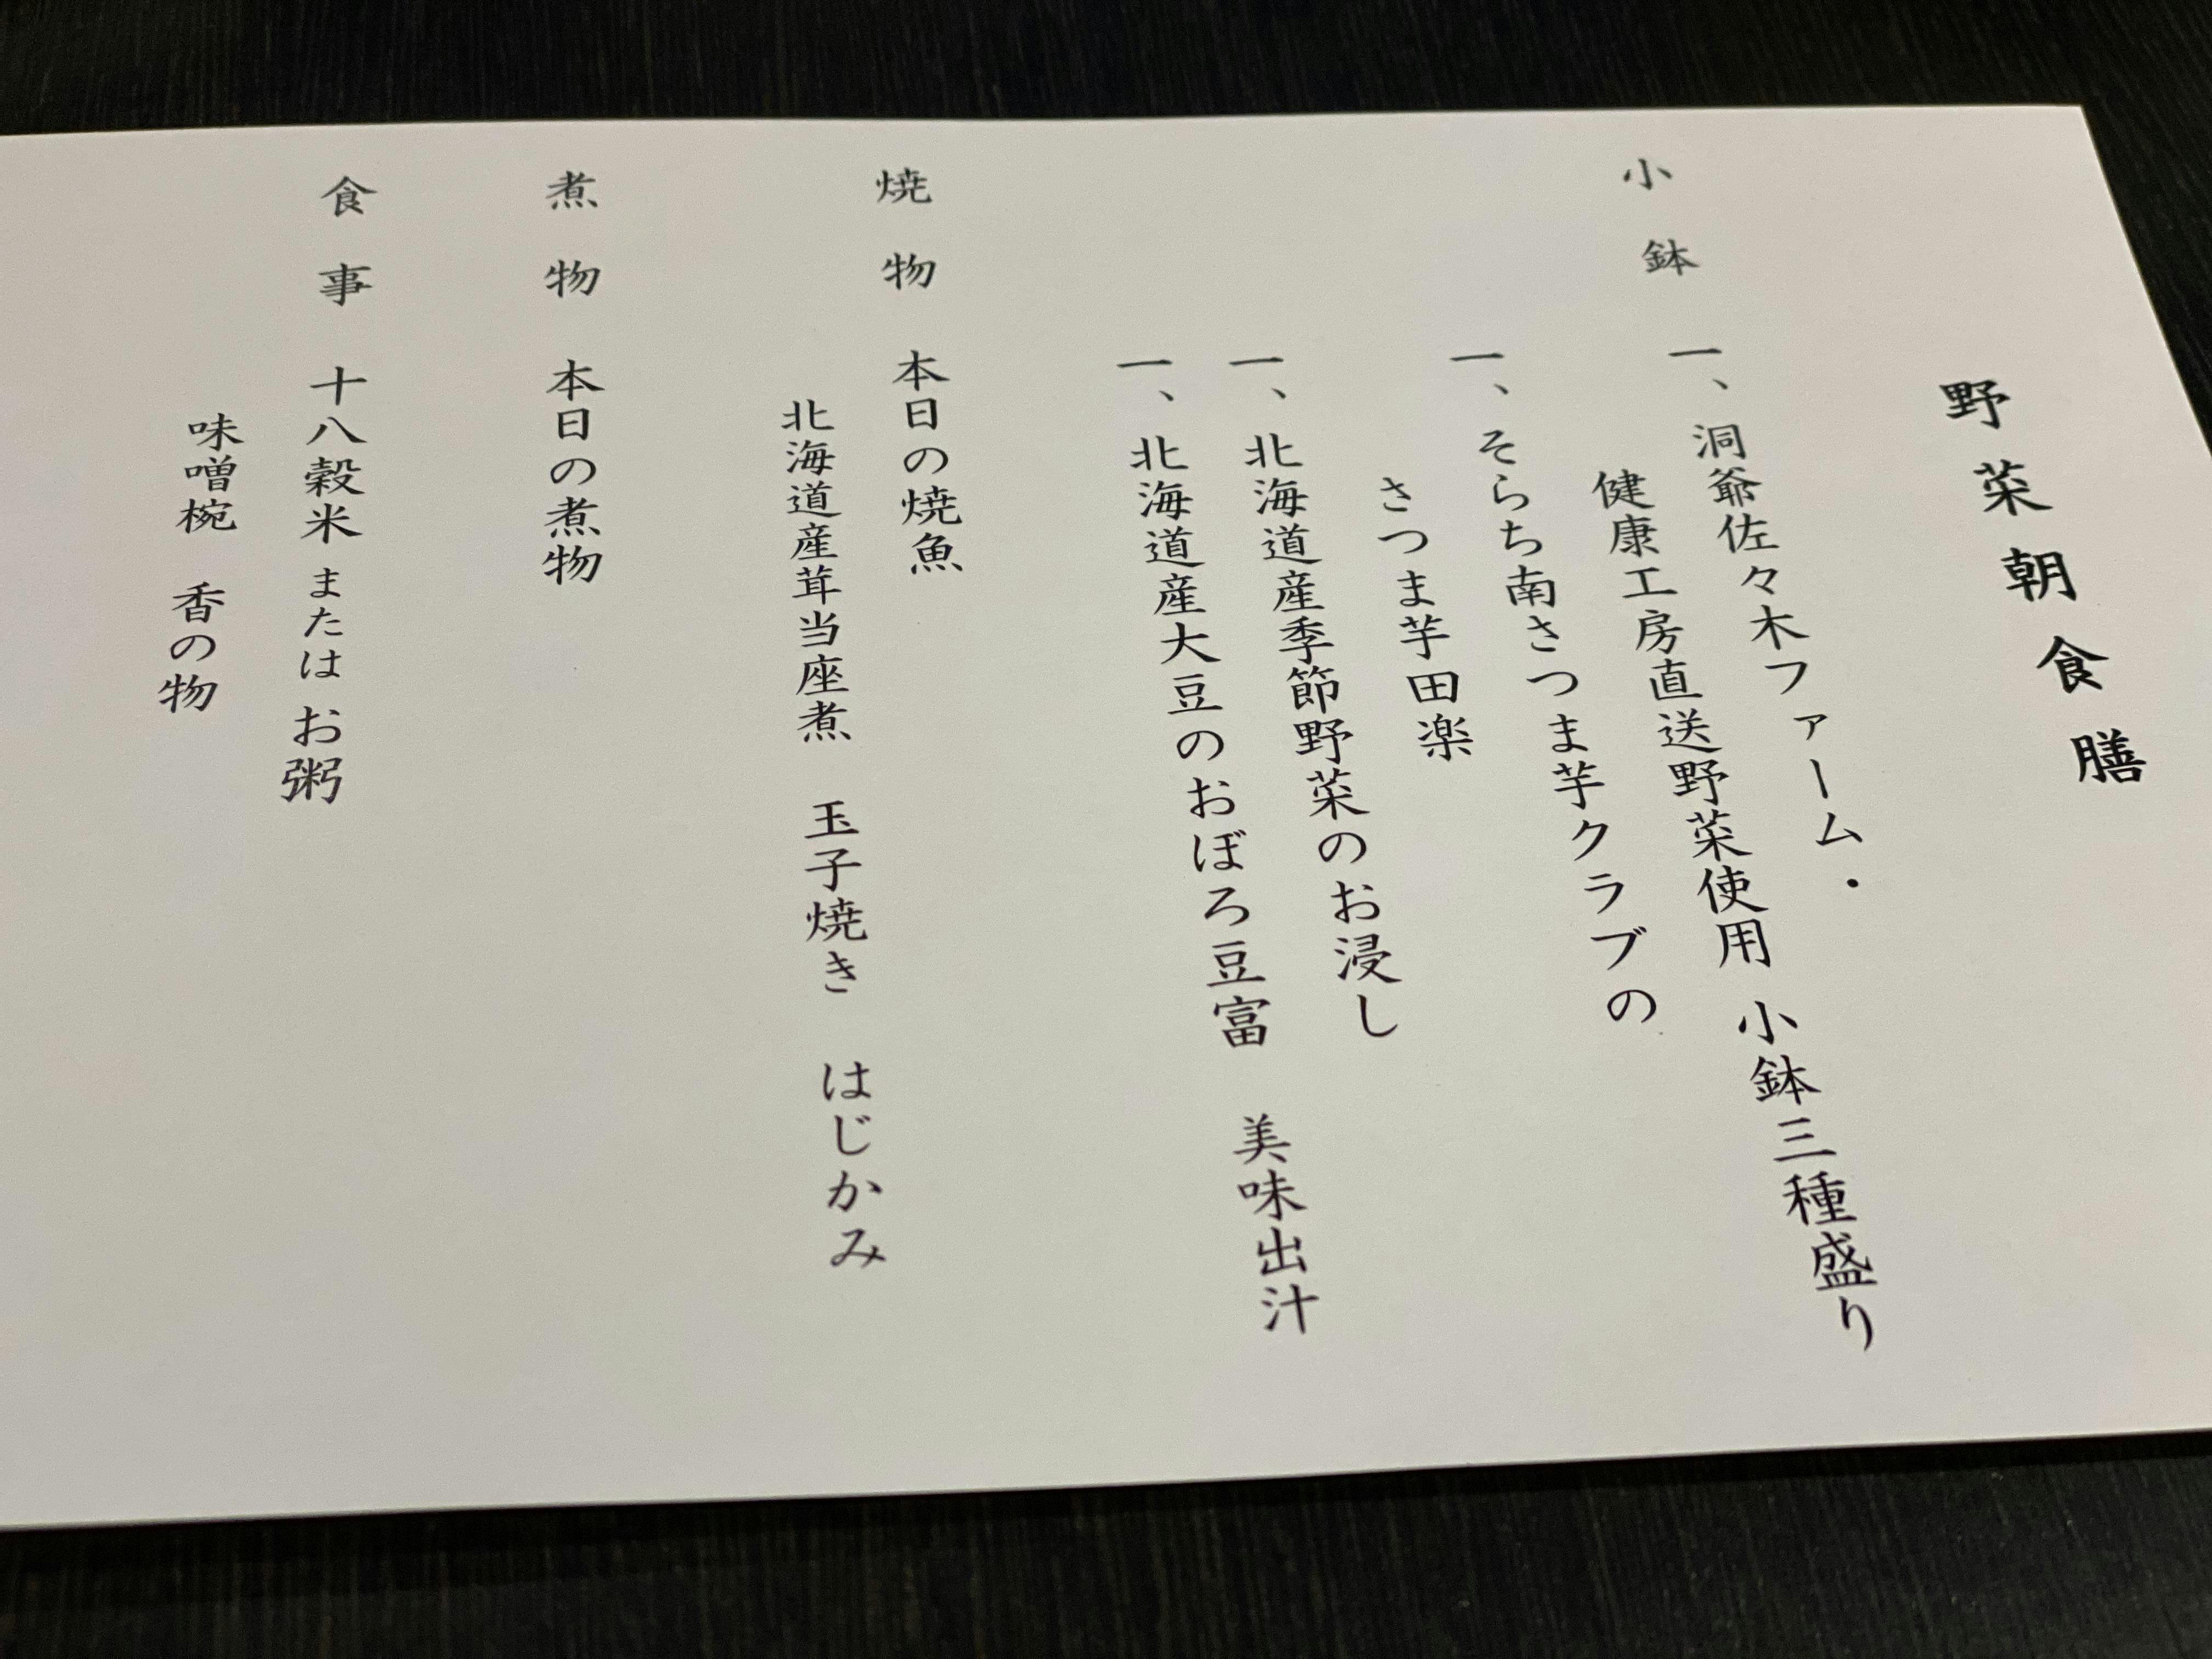 野菜朝食膳
小鉢 一、洞爺佐々木ファーム・
健康工房直送野菜使用 小鉢三種盛り
一、そらち南さつま芋クラブの
さつま芋田楽
一、北海道産季節野菜のお浸し
一、北海道産大豆のおぼろ豆富 美味出汁
焼物 本日の焼魚
北海道産茸当座煮 玉子焼き はじかみ
煮物 本日の煮物
食事 十八穀米 または お粥
味噌椀 香の物